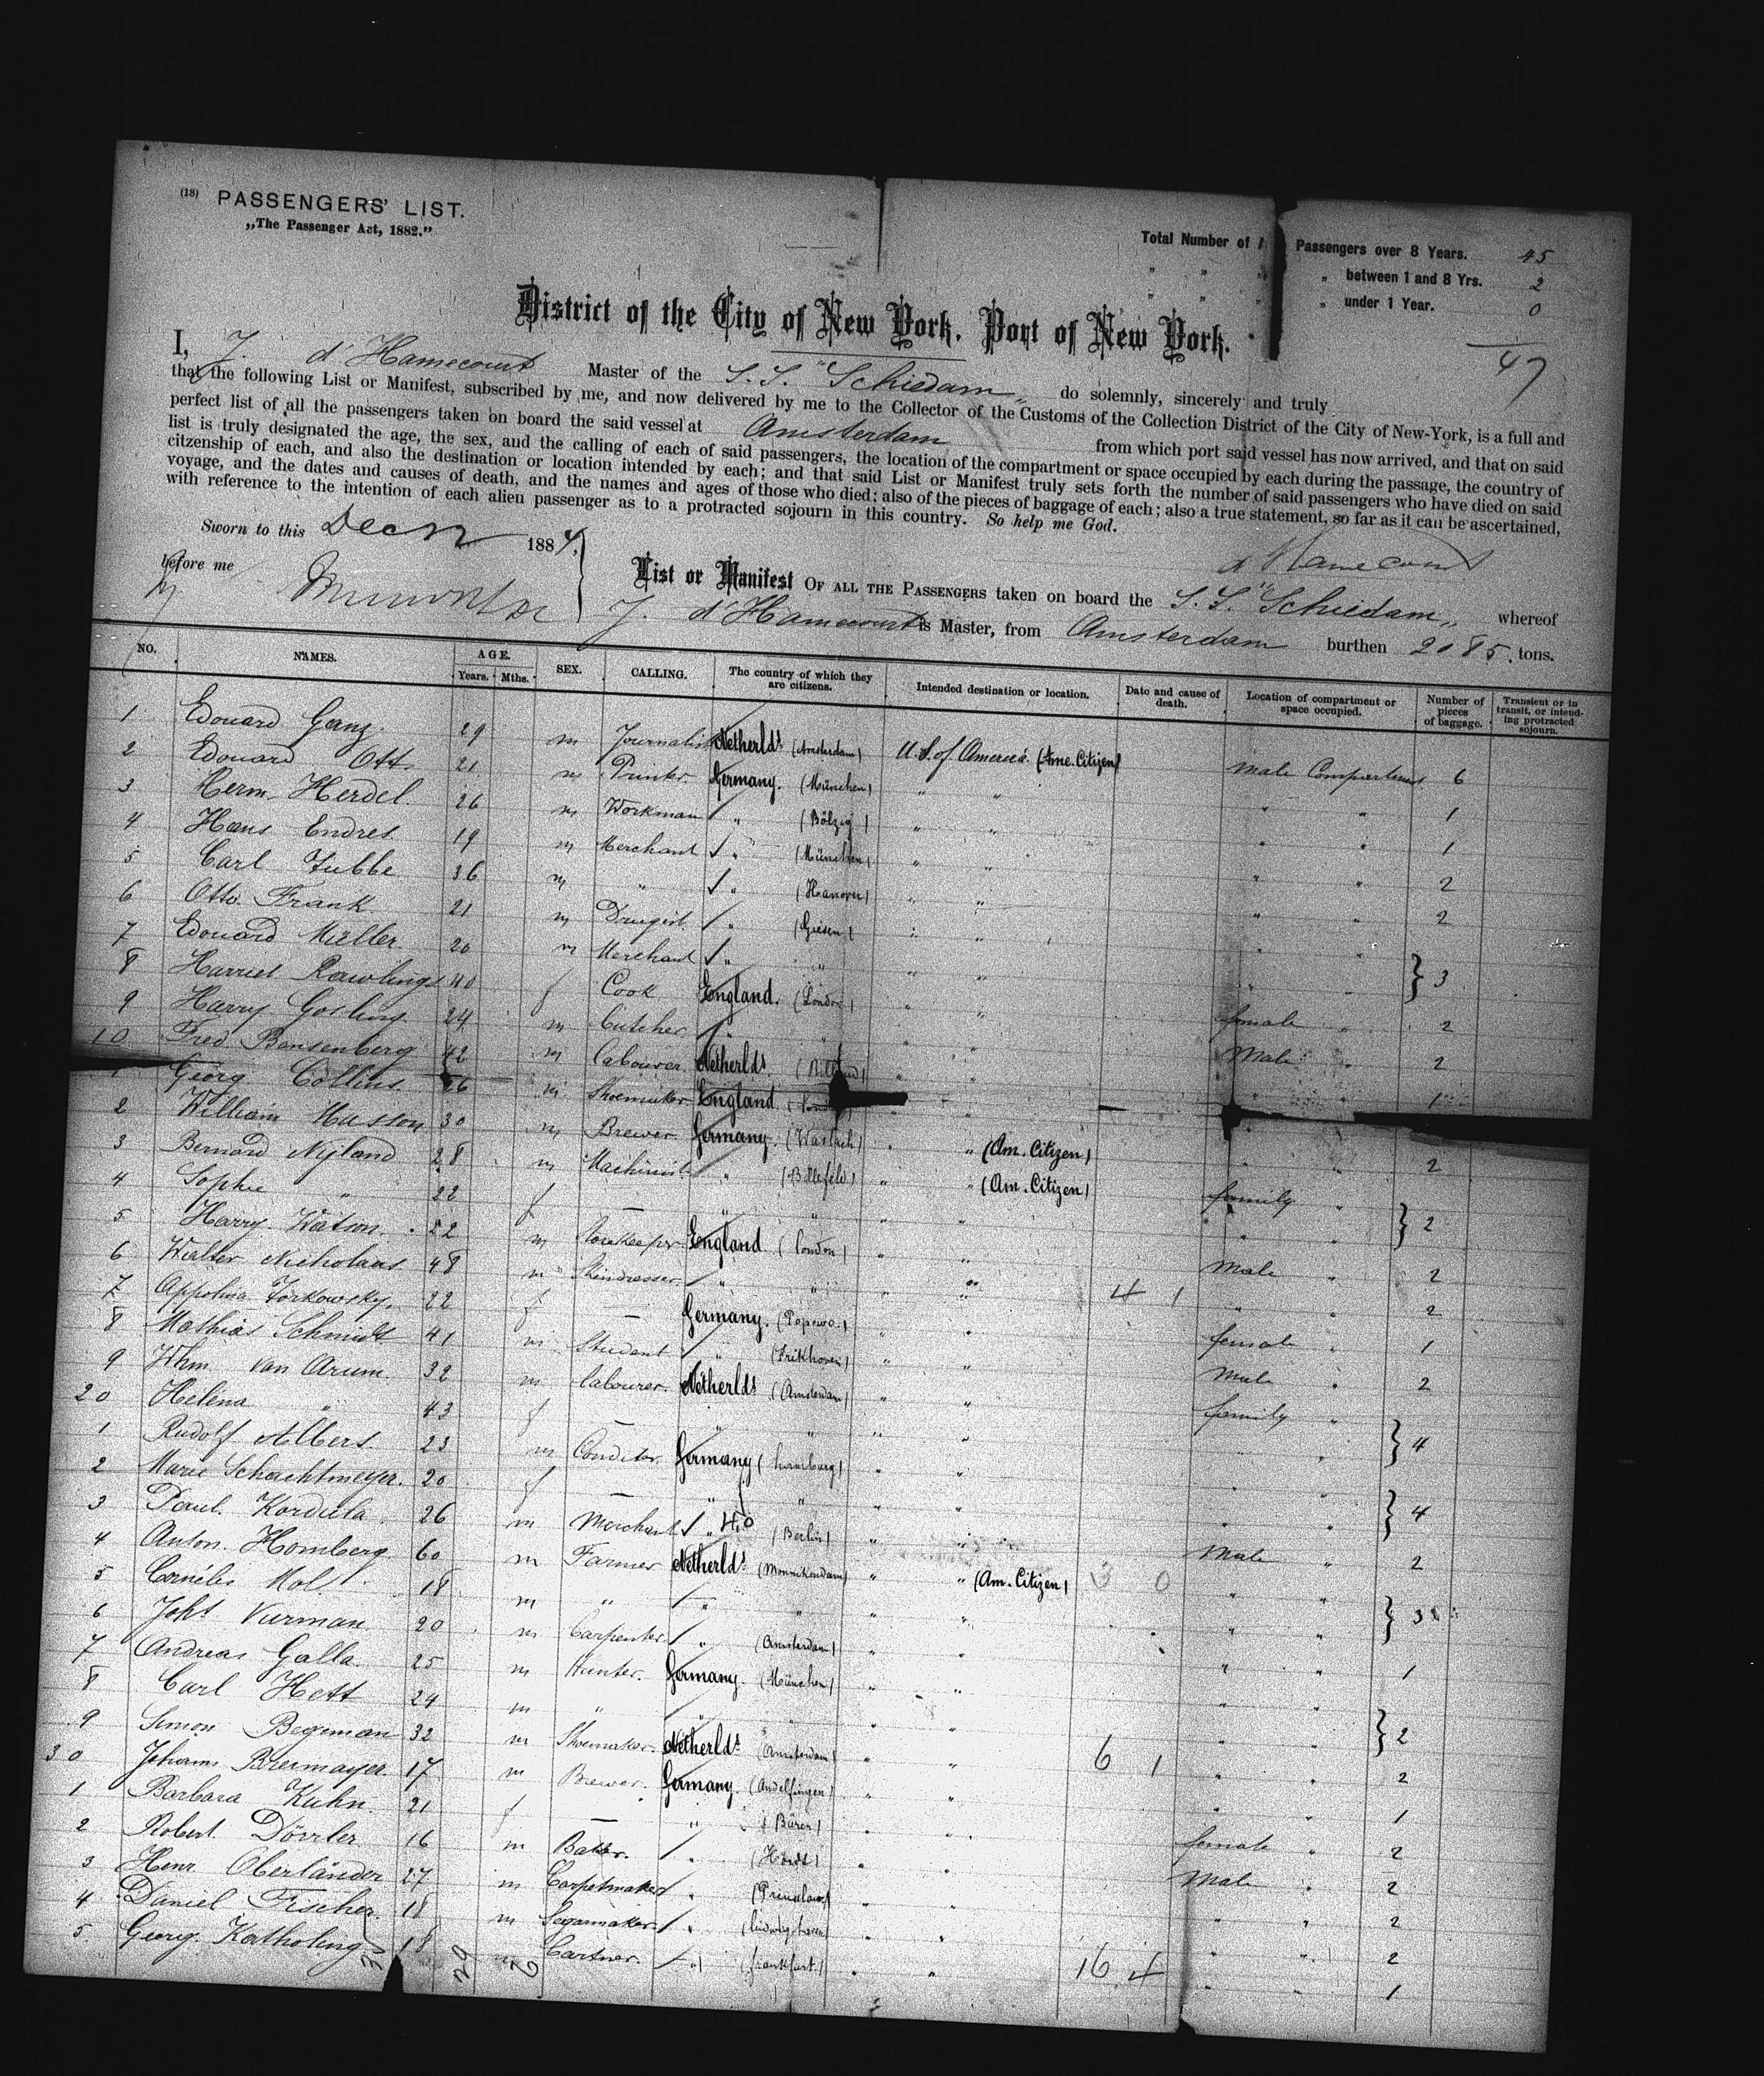 (18) PASSENGERS' LIST.
„The Passenger Act, 1882."
Total Number of Passengers over 8 Years. 45
„ „ „ „ between 1 and 8 Yrs. 2
„ „ „ „ under 1 Year. 0
47
District of the City of New York. Port of New York.
I, J. d'Hamecourt Master of the S.S. "Schiedam„ do solemnly, sincerely and truly
that the following List or Manifest, subscribed by me, and now delivered by me to the Collector of the Customs of the Collection District of the City of New-York, is a full and
perfect list of all the passengers taken on board the said vessel at Amsterdam from which port said vessel has now arrived, and that on said
list is truly designated the age, the sex, and the calling of each of said passengers, the location of the compartment or space occupied by each during the passage, the country of
citzenship of each, and also the destination or location intended by each; and that said List or Manifest truly sets forth the number of said passengers who have died on said
voyage, and the dates and causes of death, and the names and ages of those who died; also of the pieces of baggage of each; also a true statement, so far as it can be ascertained,
with reference to the intention of each alien passenger as to a protracted sojourn in this country. So help me God.
Sworn to this Decn 1884,
d'Hamecourt
before me
List or Manifest OF ALL THE PASSENGERS taken on board the S.S. "Schiedam„ whereof
J. d'Hamecourt is Master, from Amsterdam burthen 2085 tons.
NO. NAMES. AGE. Years. Mths. SEX. CALLING. The country of which they are citizens. Intended destination or location. Date and cause of death. Location of compartment or space occupied. Number of pieces of baggage. Transient or in transit, or intending protracted sojourn.
1 Edouard Ganz. 29 m Journalist Netherlds (Amsterdam) U.S. of America (Ame. Citizen) male Compartment 6
2 Edouard Ott 21 m Printer Germany. (München) „ „ „ „ 1
3 Herm. Herdel 26 m Workman „ (Bölzig) „ „ „ „ 1
4 Hans Endres 19 m Merchant „ (München) „ „ „ „ 2
5 Carl Tubbe 36 m „ „ (Hanover) „ „ „ „ 2
6 Otto Frank 21 m Drugist „ (Giesen) „ „ „ „
7 Edouard Müller 20 m Merchant „ „ „ „ „ „ } 3
8 Harriet Rawlings 40 f Cook England. (London) „ „ female „ 2
9 Harry Gosling 24 m Butcher „ „ „ „ Male „ 2
10 Fred Bensenberg 42 m labourer. Netherlds. „ „ „ „ 1
1 Georg Collins 26 m Shoemaker England „ „
2 William Masson 30 m Brewer. Germany. „ „ (Am. Citizen) „ „ 2
3 Bernard Nijland 28 m Machinist „ (Billefeld) „ „ (Am. Citizen) family „
4 Sophie „ 22 f — „ „ „ „ „ „ } 2
5 Harry Watson. 22 m Storekeeper England (London) „ „ Male „ 2
6 Walter Nicholaas 48 m Skindresser „ „ „ „ 4 1 „ „ 2
7 Appolina Torkowsky. 22 f — Germany. (Popowo) „ „ female „ 1
8 Mathias Schmidt 41 m Student „ (Frikhoven) „ „ Male „ 2
9 Whm. van Arum. 32 m labourer. Netherlds (Amsterdam) „ „ family „
20 Helena „ 43 f — „ „ „ „ „ „ } 4
1 Rudolf Albers. 23 m Conditor Germany (hamburg) „ „ „ „
2 Marie Schachtmeyer. 20 f — „ „ „ „ „ „ } 4
3 Paul. Kordula 26 m Merchant „ (Berlin) „ „ Male „ 2
4 Anton. Homberg. 60 m Farmer Netherlds. (Monnikendam) „ „ (Am. Citizen) 3 0 „ „
5 Cornelis Mol 18 m „ „ „ „ „ „ „ } 3
6 Joht Vurman 20 m Carpenter „ (Amsterdam) „ „ „ „ 1
7 Andreas Galla. 25 m Hunter. Germany. (München) „ „ „ „
8 Carl Hett 24 m „ „ „ „ „ „ „ } 2
9 Simon Begeman 32 m Shoemaker. Netherlds (Amsterdam) „ „ 6 1 „ „ 2
30 Johann Biermayer. 17 m Brewer. Germany. (Andelfingen) „ „ „ „ 1
1 Barbara Kuhn. 21 f — „ (Büren) „ „ female „ 2
2 Robert Dörrler 16 m Baker. „ (Hördt) „ „ Male „ 2
3 Henr. Oberländer 27 m Carpetmaker „ (Prenslau) „ „ „ „ 2
4 Daniel Fischer. 18 m Segarmaker. „ (ludwigshaven) „ „ „ „ 2
5. Georg. Katholing 18 m Gartner. „ (frankfurt.) „ „ 16 4 „ „ 1